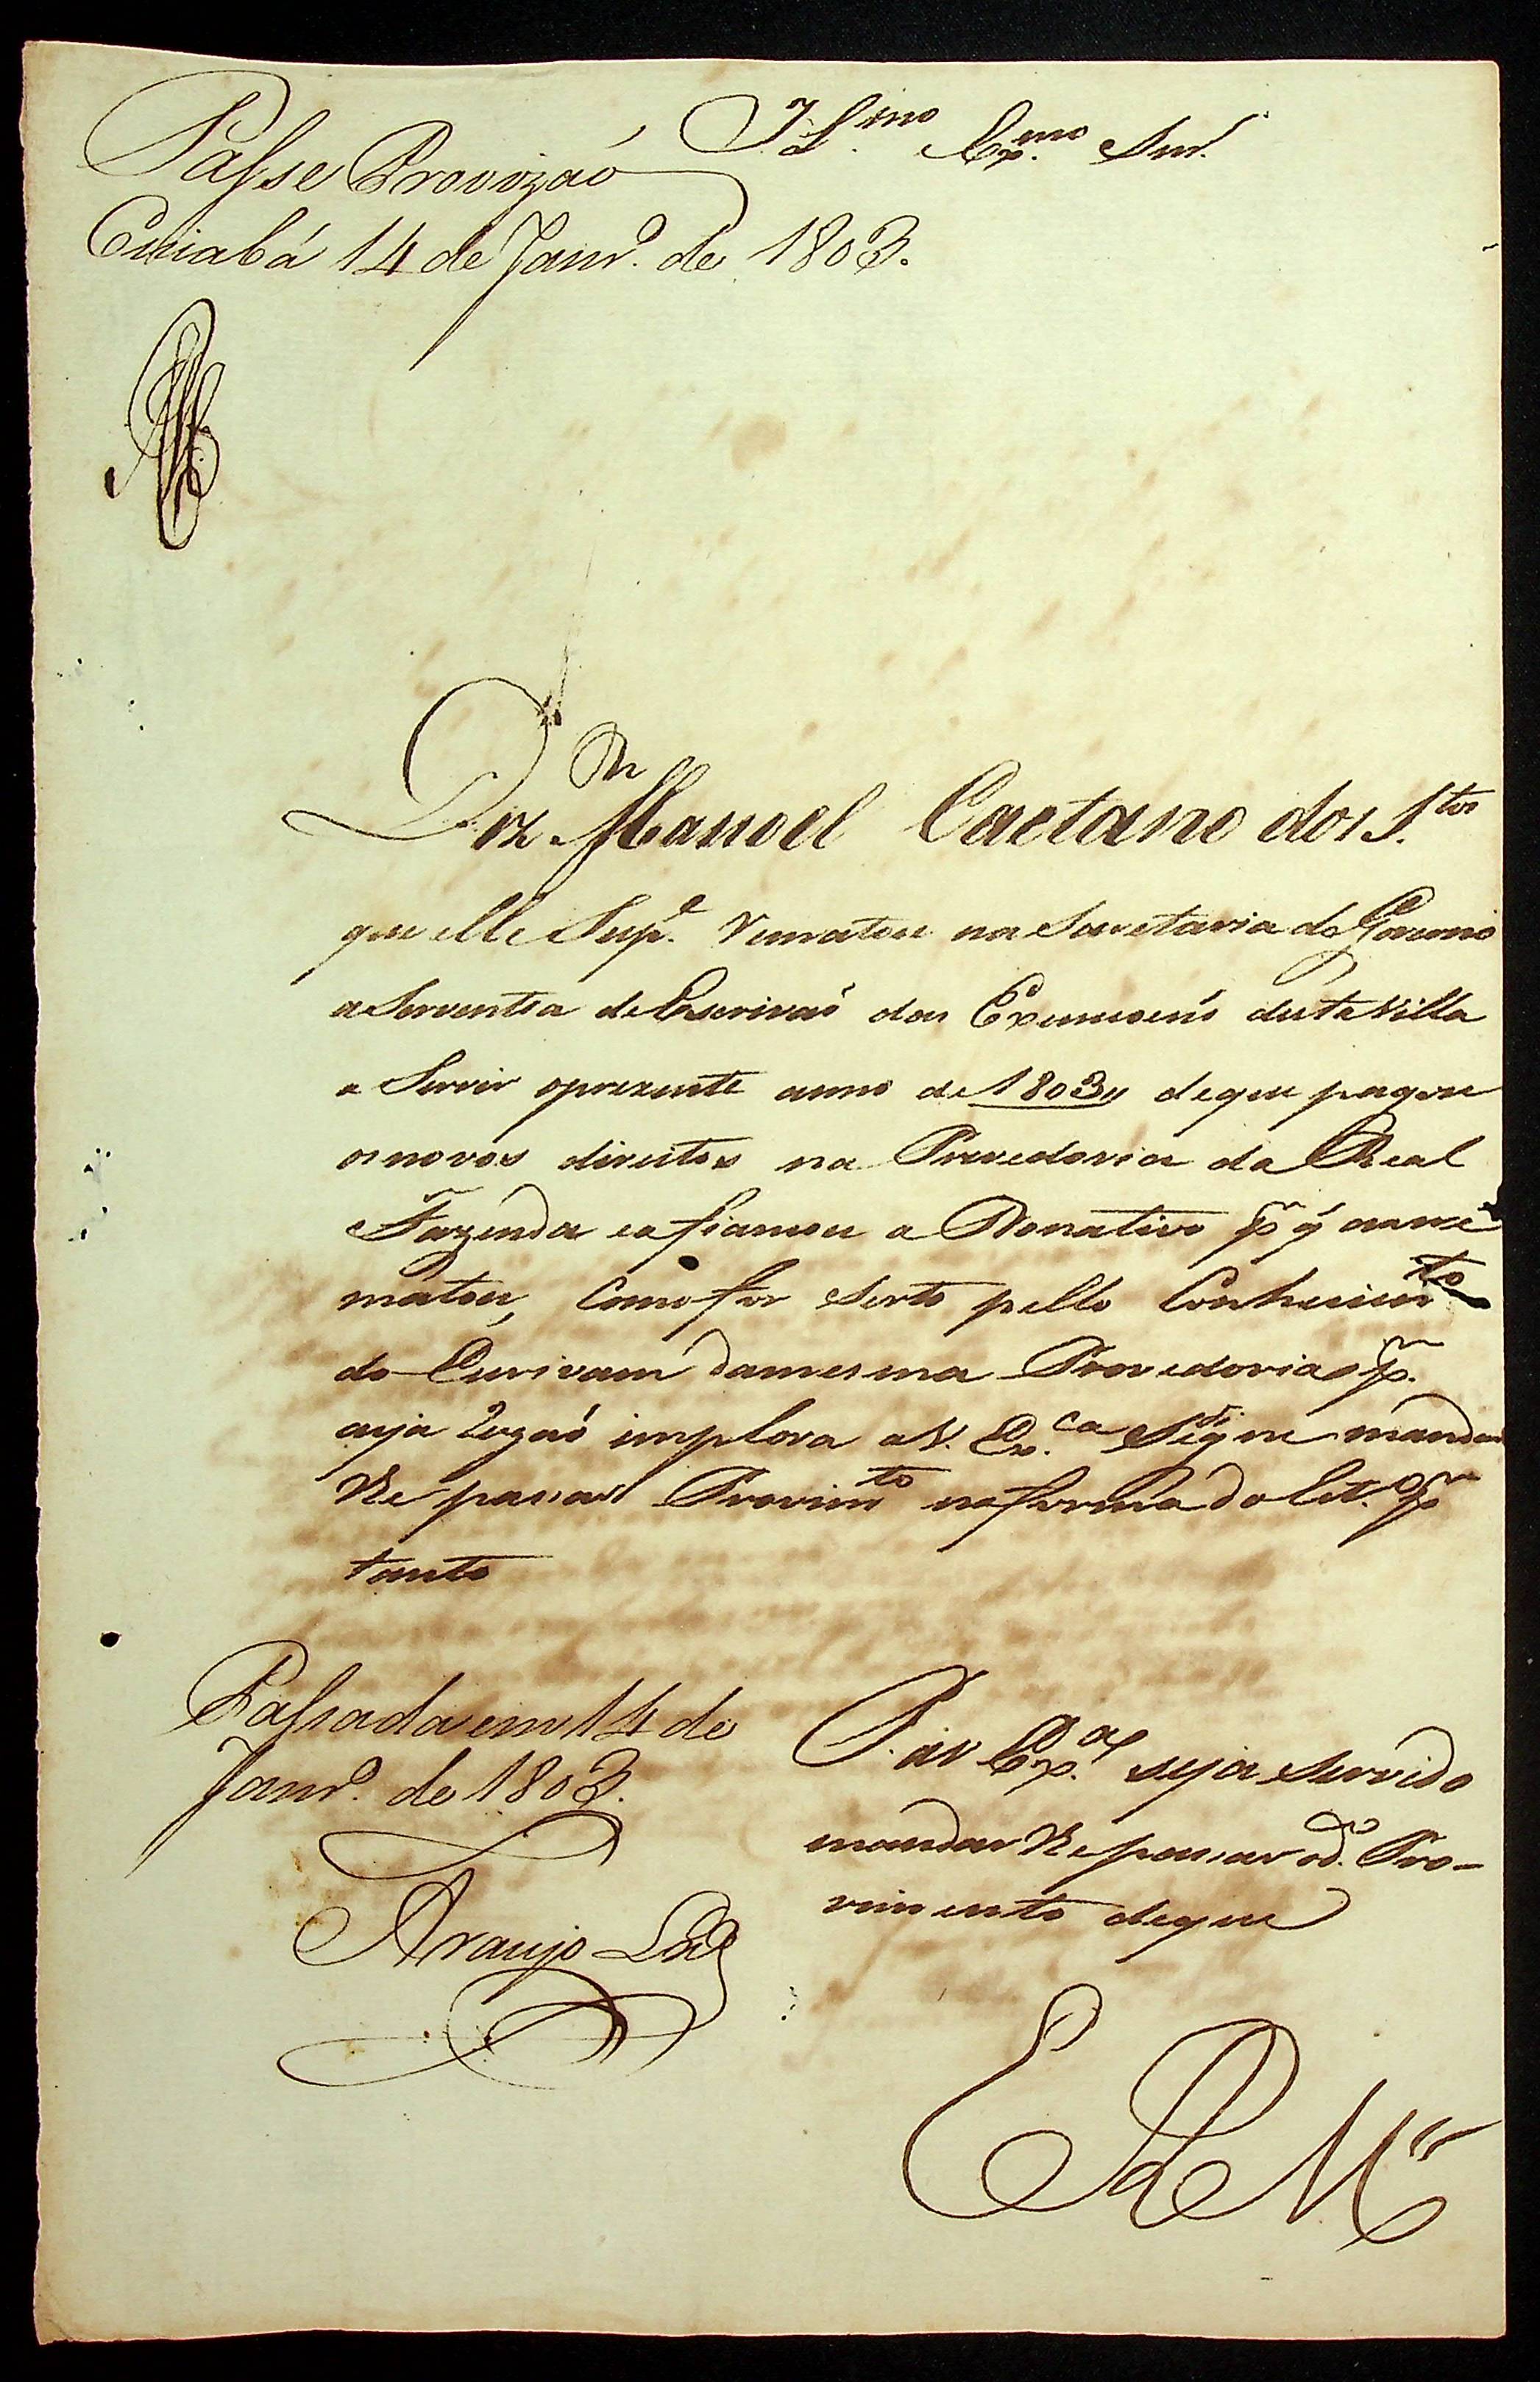 Ill.mo Ex.mo Snr.
Passe Provizaó
Cuiabá 14 de Janr.o de 1803.
Diz Manoel Caetano dos S.tos
que elle Sup.e Rematou na Secretaria do Governo
a Serventia de Escrivaó das Execusoins desta Villa
a Servir oprezente anno de 1803,, deque pagou
os novos direitos na Provedoria da Real
Fazenda eafiansou a Donativo p.r q̃ arre
matou, Como fas Serto pello Conhecim.to
do Escrivam damesma Provedoria p.r
cuja Rezaó implora aV. Ex.ca Sedigne mandar
lhe passar Provim.to naforma do Est.o p.r
tanto
P. aV Ex.a seja Servido
mandar lhe passar od.o Pro-
vimento deque
E R M.ce
Passada em 14 de
Janr.o de 1803.
Araujo